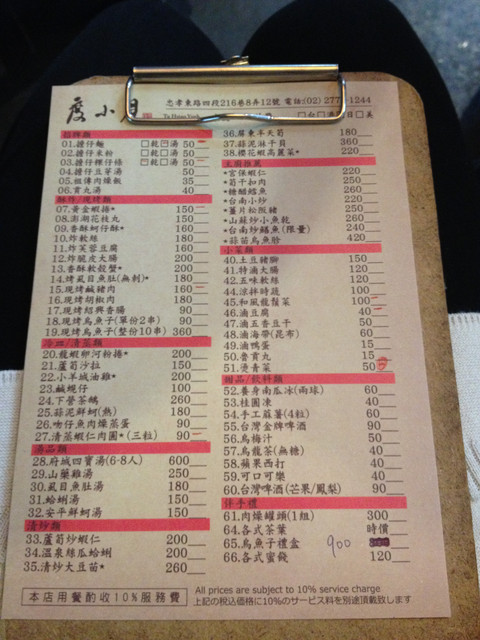 度小月
Tu Hsiao Yueh
忠孝東路四段216巷8弄12號 電話:(02) 277 -1244
招牌類
01.擔仔麵 □乾□湯 50
02.擔仔米粉 □乾□湯 50
03.擔仔粿仔條 □乾□湯 50
04.擔仔豆芽湯 50
05.祖傳肉燥飯 35
06.貢丸湯 40
酥炸/現烤類
07.黃金蝦捲* 150
08.澎湖花枝丸 150
09.香酥蚵仔酥* 160
10.炸軟絲 180
11.炸芙蓉豆腐 160
12.炸脆皮大腸 200
13.香酥軟殼蟹* 200
14.烤虱目魚肚(無刺)* 180
15.現烤鹹豬肉 160
16.現烤胡椒肉 180
17.現烤紹興香腸 90
18.現烤烏魚子(單份2串) 90
19.現烤烏魚子(整份10串) 360
冷盤/清蒸類
20.龍蝦卵河粉捲* 200
21.蘆筍沙拉 150
22.小羊城油雞* 200
23.鹹蜆仔 100
24.下薑茶鵝 250
25.蒜泥鮮蚵(熱) 180
26.吻仔魚肉燥蒸蛋 90
27.清蒸蝦仁肉圓* (三粒) 90
湯品類
28.府城四寶湯(6-8人) 600
29.山藥雞湯 250
30.虱目魚肚湯 180
31.蛤蜊湯 150
32.安平鮮蚵湯 150
清炒類
33.蘆筍炒蝦仁 200
34.溫泉絲瓜蛤蜊 200
35.清炒大豆苗* 260
36.屏東羊天筍 180
37.蒜泥淋干貝 360
38.櫻花蝦高麗菜* 220
主廚推薦
*宮保蝦仁 220
*筍干扣肉 250
*糖醋鱈魚 260
*台南小炒 220
*薑片松阪豬 250
*山蘇炒小魚乾 260
*台南炒鱔魚(限量) 240
*蒜苗烏魚胗 420
小菜類
40.土豆豬腳 150
41.特滷大腸 120
42.五味軟絲 120
44.涼拌時蔬 100
45.和風龍鬚菜 100
46.滷豆腐 40
47.滷五香豆干 50
48.滷海帶(昆布) 60
49.滷鴨蛋 15
50.魯貢丸 15
51.燙青菜 50
甜品/飲料類
52.養身南瓜冰(兩球) 60
53.桂圓凍 40
54.手工麻薯(4粒) 60
55.台灣金牌啤酒 90
56.烏梅汁 50
57.烏龍茶(無糖) 40
58.蘋果西打 40
59.可口可樂 40
60.台灣啤酒(芒果/鳳梨) 90
伴手禮
61.肉燥罐頭(1組) 300
64.各式茶葉 時價
65.烏魚子禮盒 900
66.各式蜜餞 120
本店用餐酌收10%服務費
All prices are subject to 10% service charge
上記の税込価格に10%のサービス料を別途頂戴致します